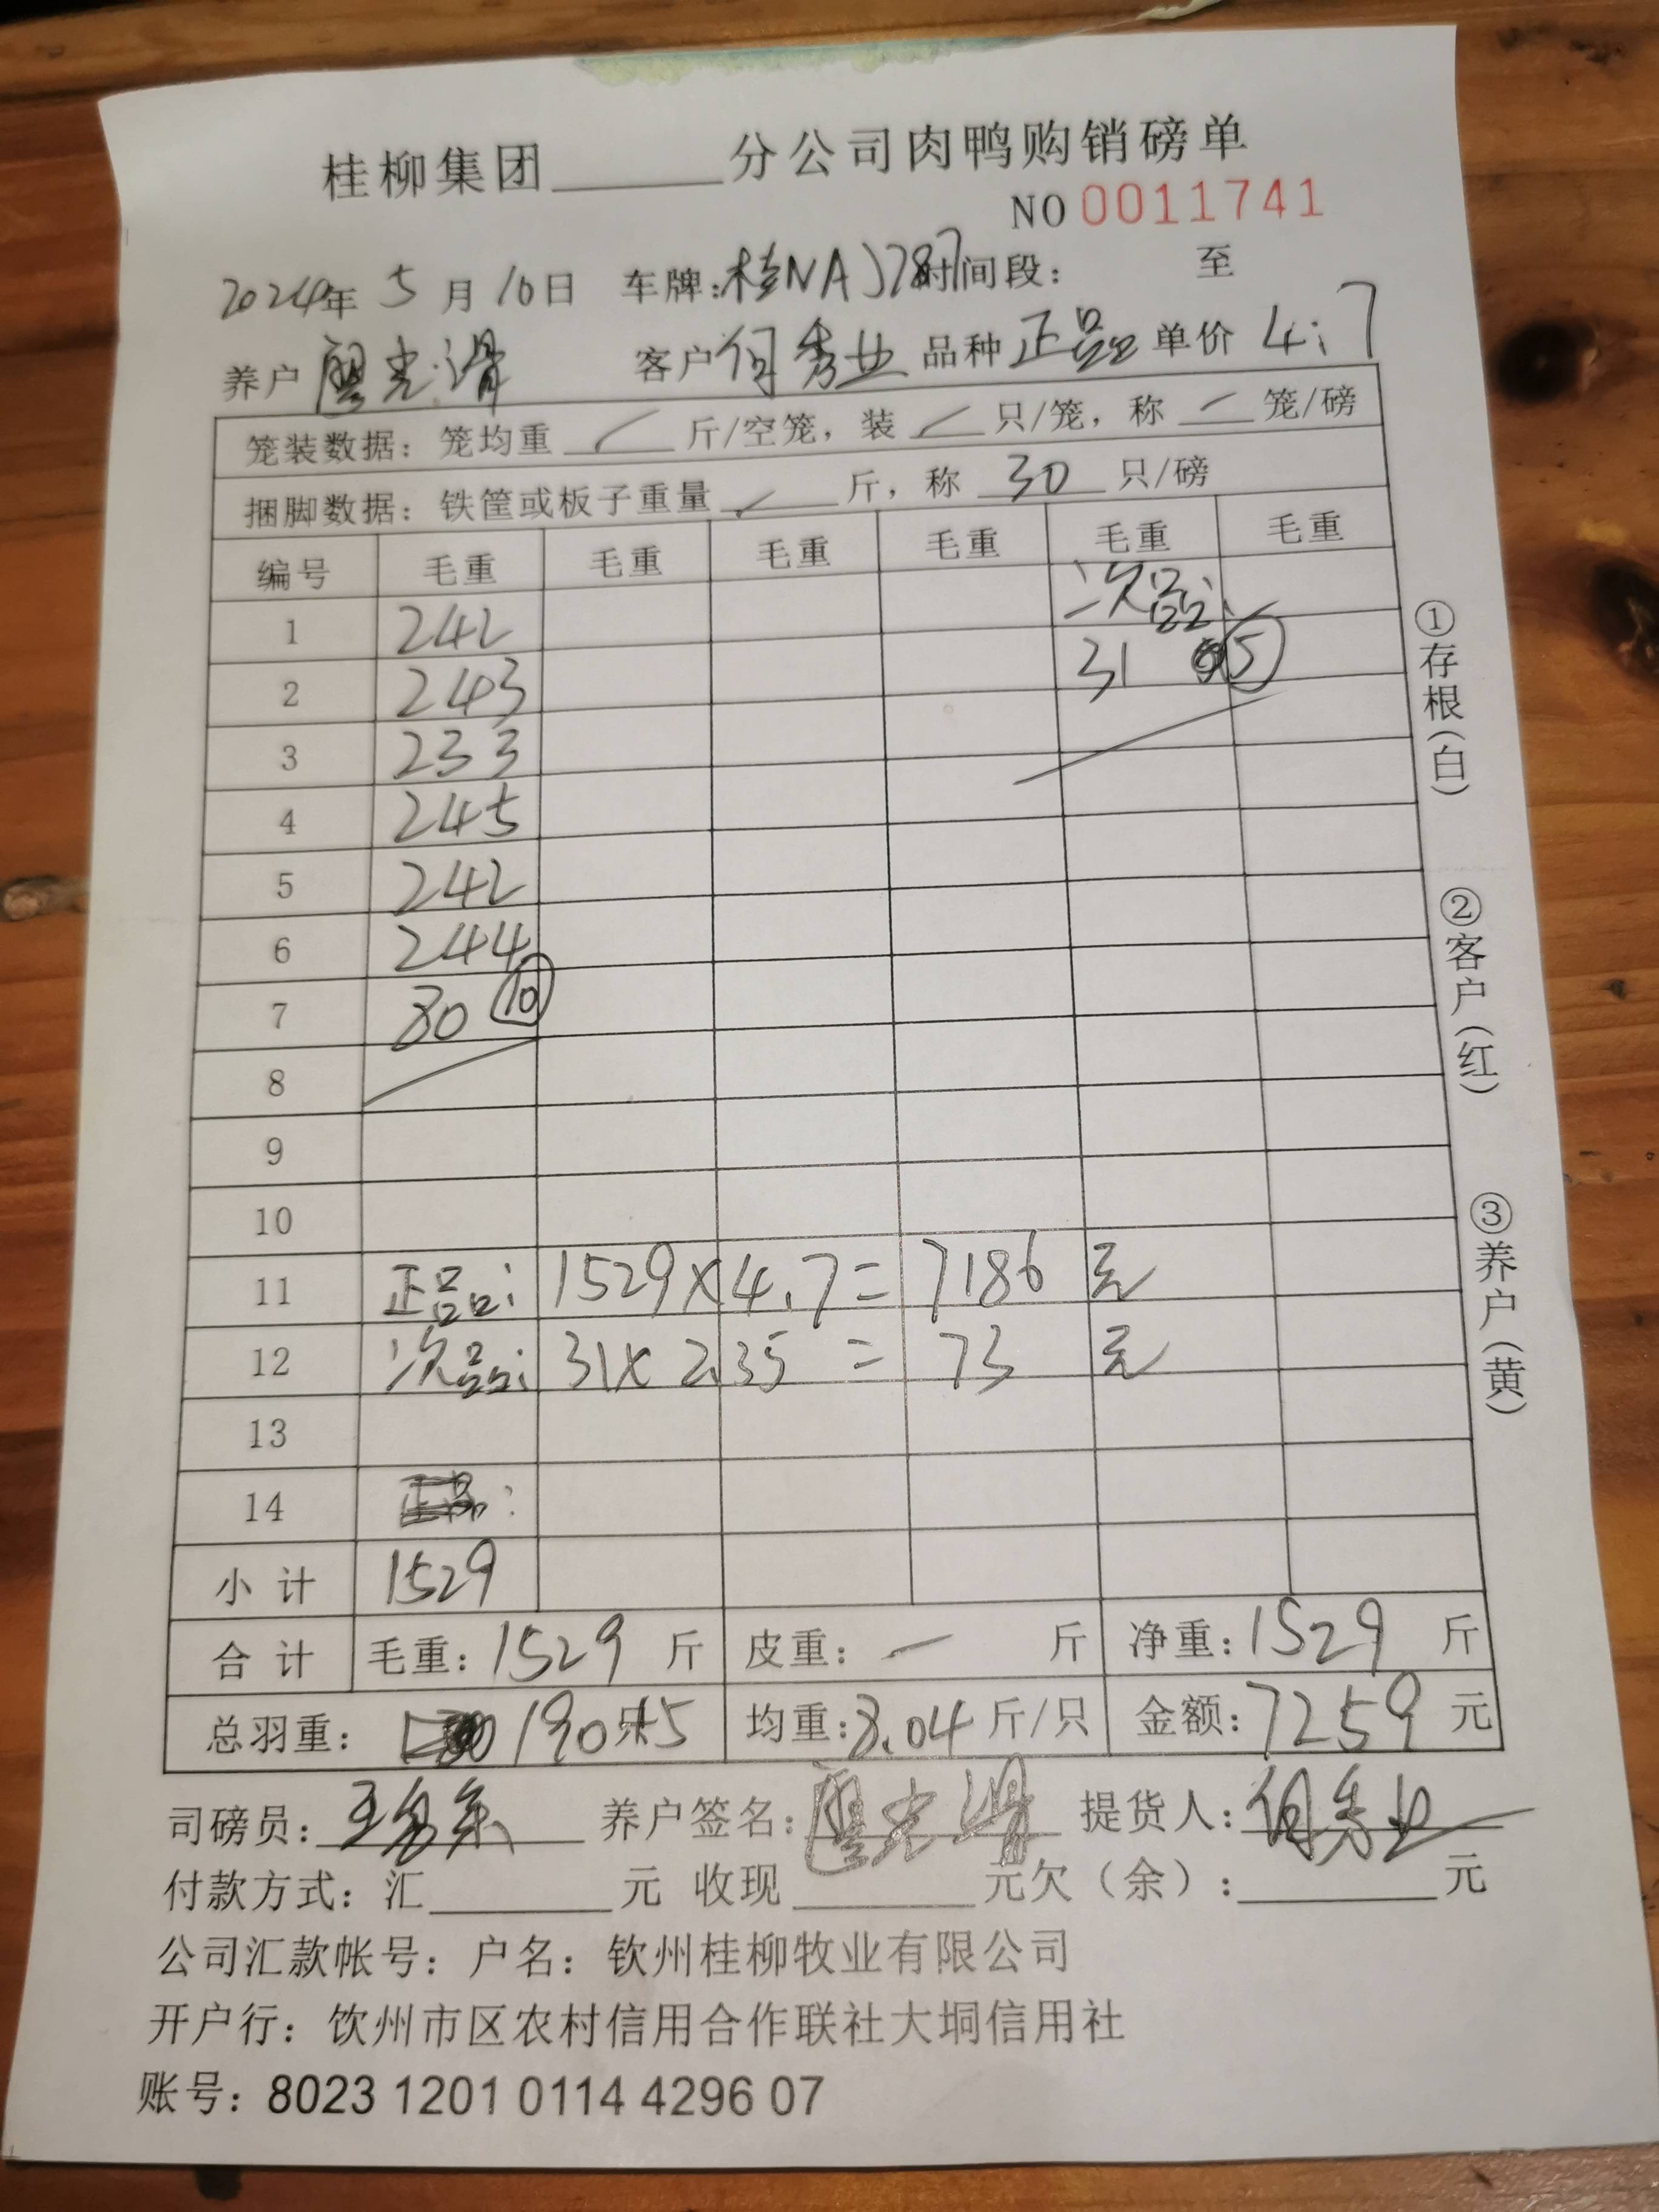 桂柳集团______分公司肉鸭购销磅单
NO 0011741
2024年 5月10日 车牌:桂NAJ787时间段: 至
养户 廖光滑 客户 何秀业 品种 正品 单价 4.7
笼装数据: 笼均重 / 斤/空笼, 装 / 只/笼, 称 / 笼/磅
捆脚数据: 铁筐或板子重量 / 斤, 称 30 只/磅
编号 毛重 毛重 毛重 毛重 毛重 毛重
1 242 次品:
2 243 31 ⑤
3 233
4 245
5 242
6 244
7 80 ⑩
8
9
10
11 正品: 1529×4.7= 7186 元
12 次品: 31×2.35 = 73 元
13
14
小计 1529
合计 毛重: 1529 斤 皮重: — 斤 净重: 1529 斤
总羽重: 190只+5 均重: 8.04 斤/只 金额: 7259 元
司磅员: 养户签名: 廖光滑 提货人: 何秀业
付款方式: 汇______元 收现______元欠(余):______元
公司汇款帐号: 户名: 钦州桂柳牧业有限公司
开户行: 饮州市区农村信用合作联社大垌信用社
账号: 8023 1201 0114 4296 07
①存根(白)
②客户(红)
③养户(黄)